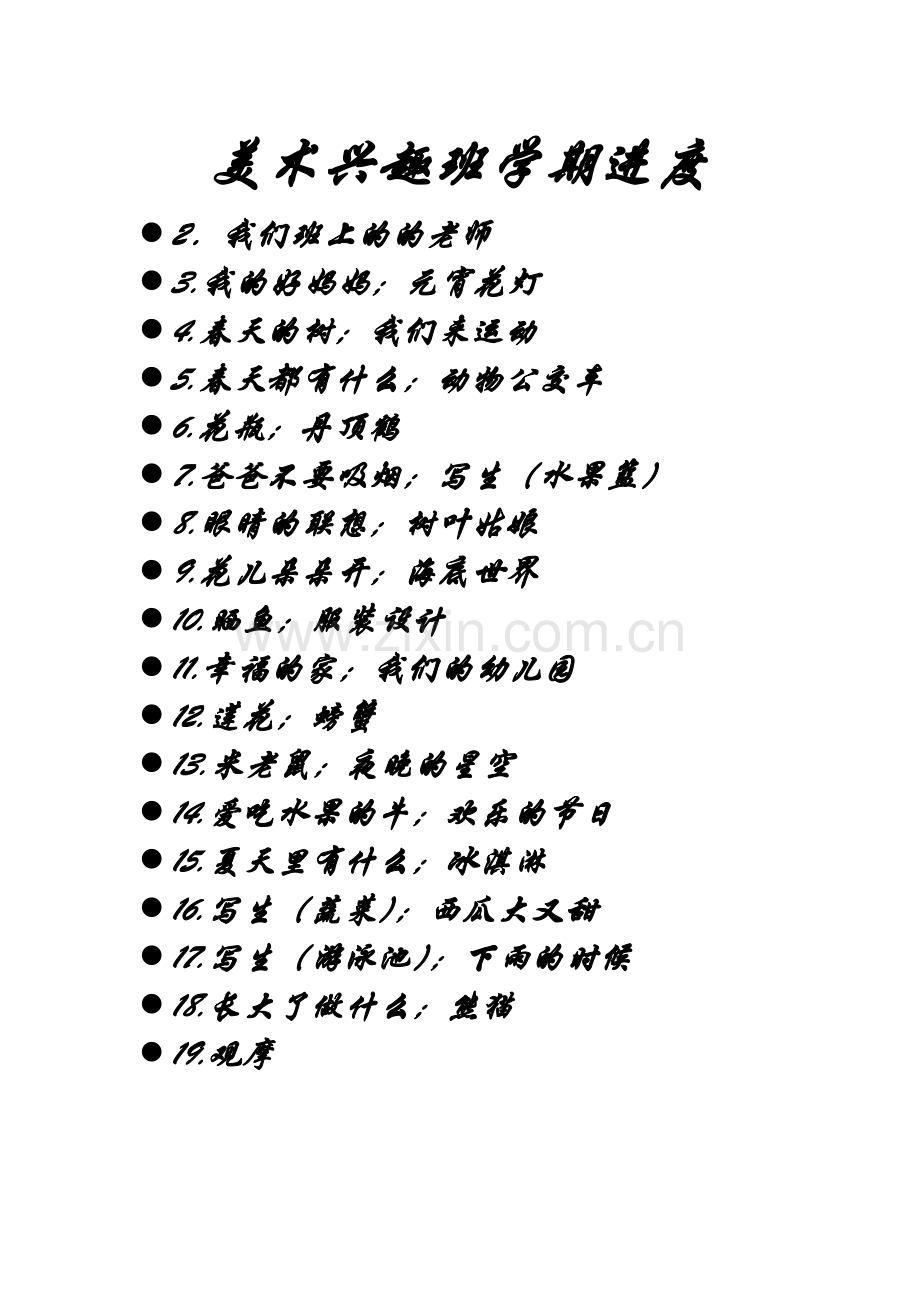 美术兴趣班学期进度
●2. 我们班上的的老师
●3.我的好妈妈；元宵花灯
●4.春天的树；我们来运动
●5.春天都有什么；动物公交车
●6.花瓶；丹顶鹤
●7.爸爸不要吸烟；写生（水果蓝）
●8.眼睛的联想；树叶姑娘
●9.花儿朵朵开；海底世界
●10.晒鱼；服装设计
www.zixin.com.cn
●11.幸福的家；我们的幼儿园
●12.莲花；螃蟹
●13.米老鼠；夜晚的星空
●14.爱吃水果的牛；欢乐的节日
●15.夏天里有什么；冰淇淋
●16.写生（蔬菜）；西瓜大又甜
●17.写生（游泳池）；下雨的时候
●18.长大了做什么；熊猫
●19.观摩